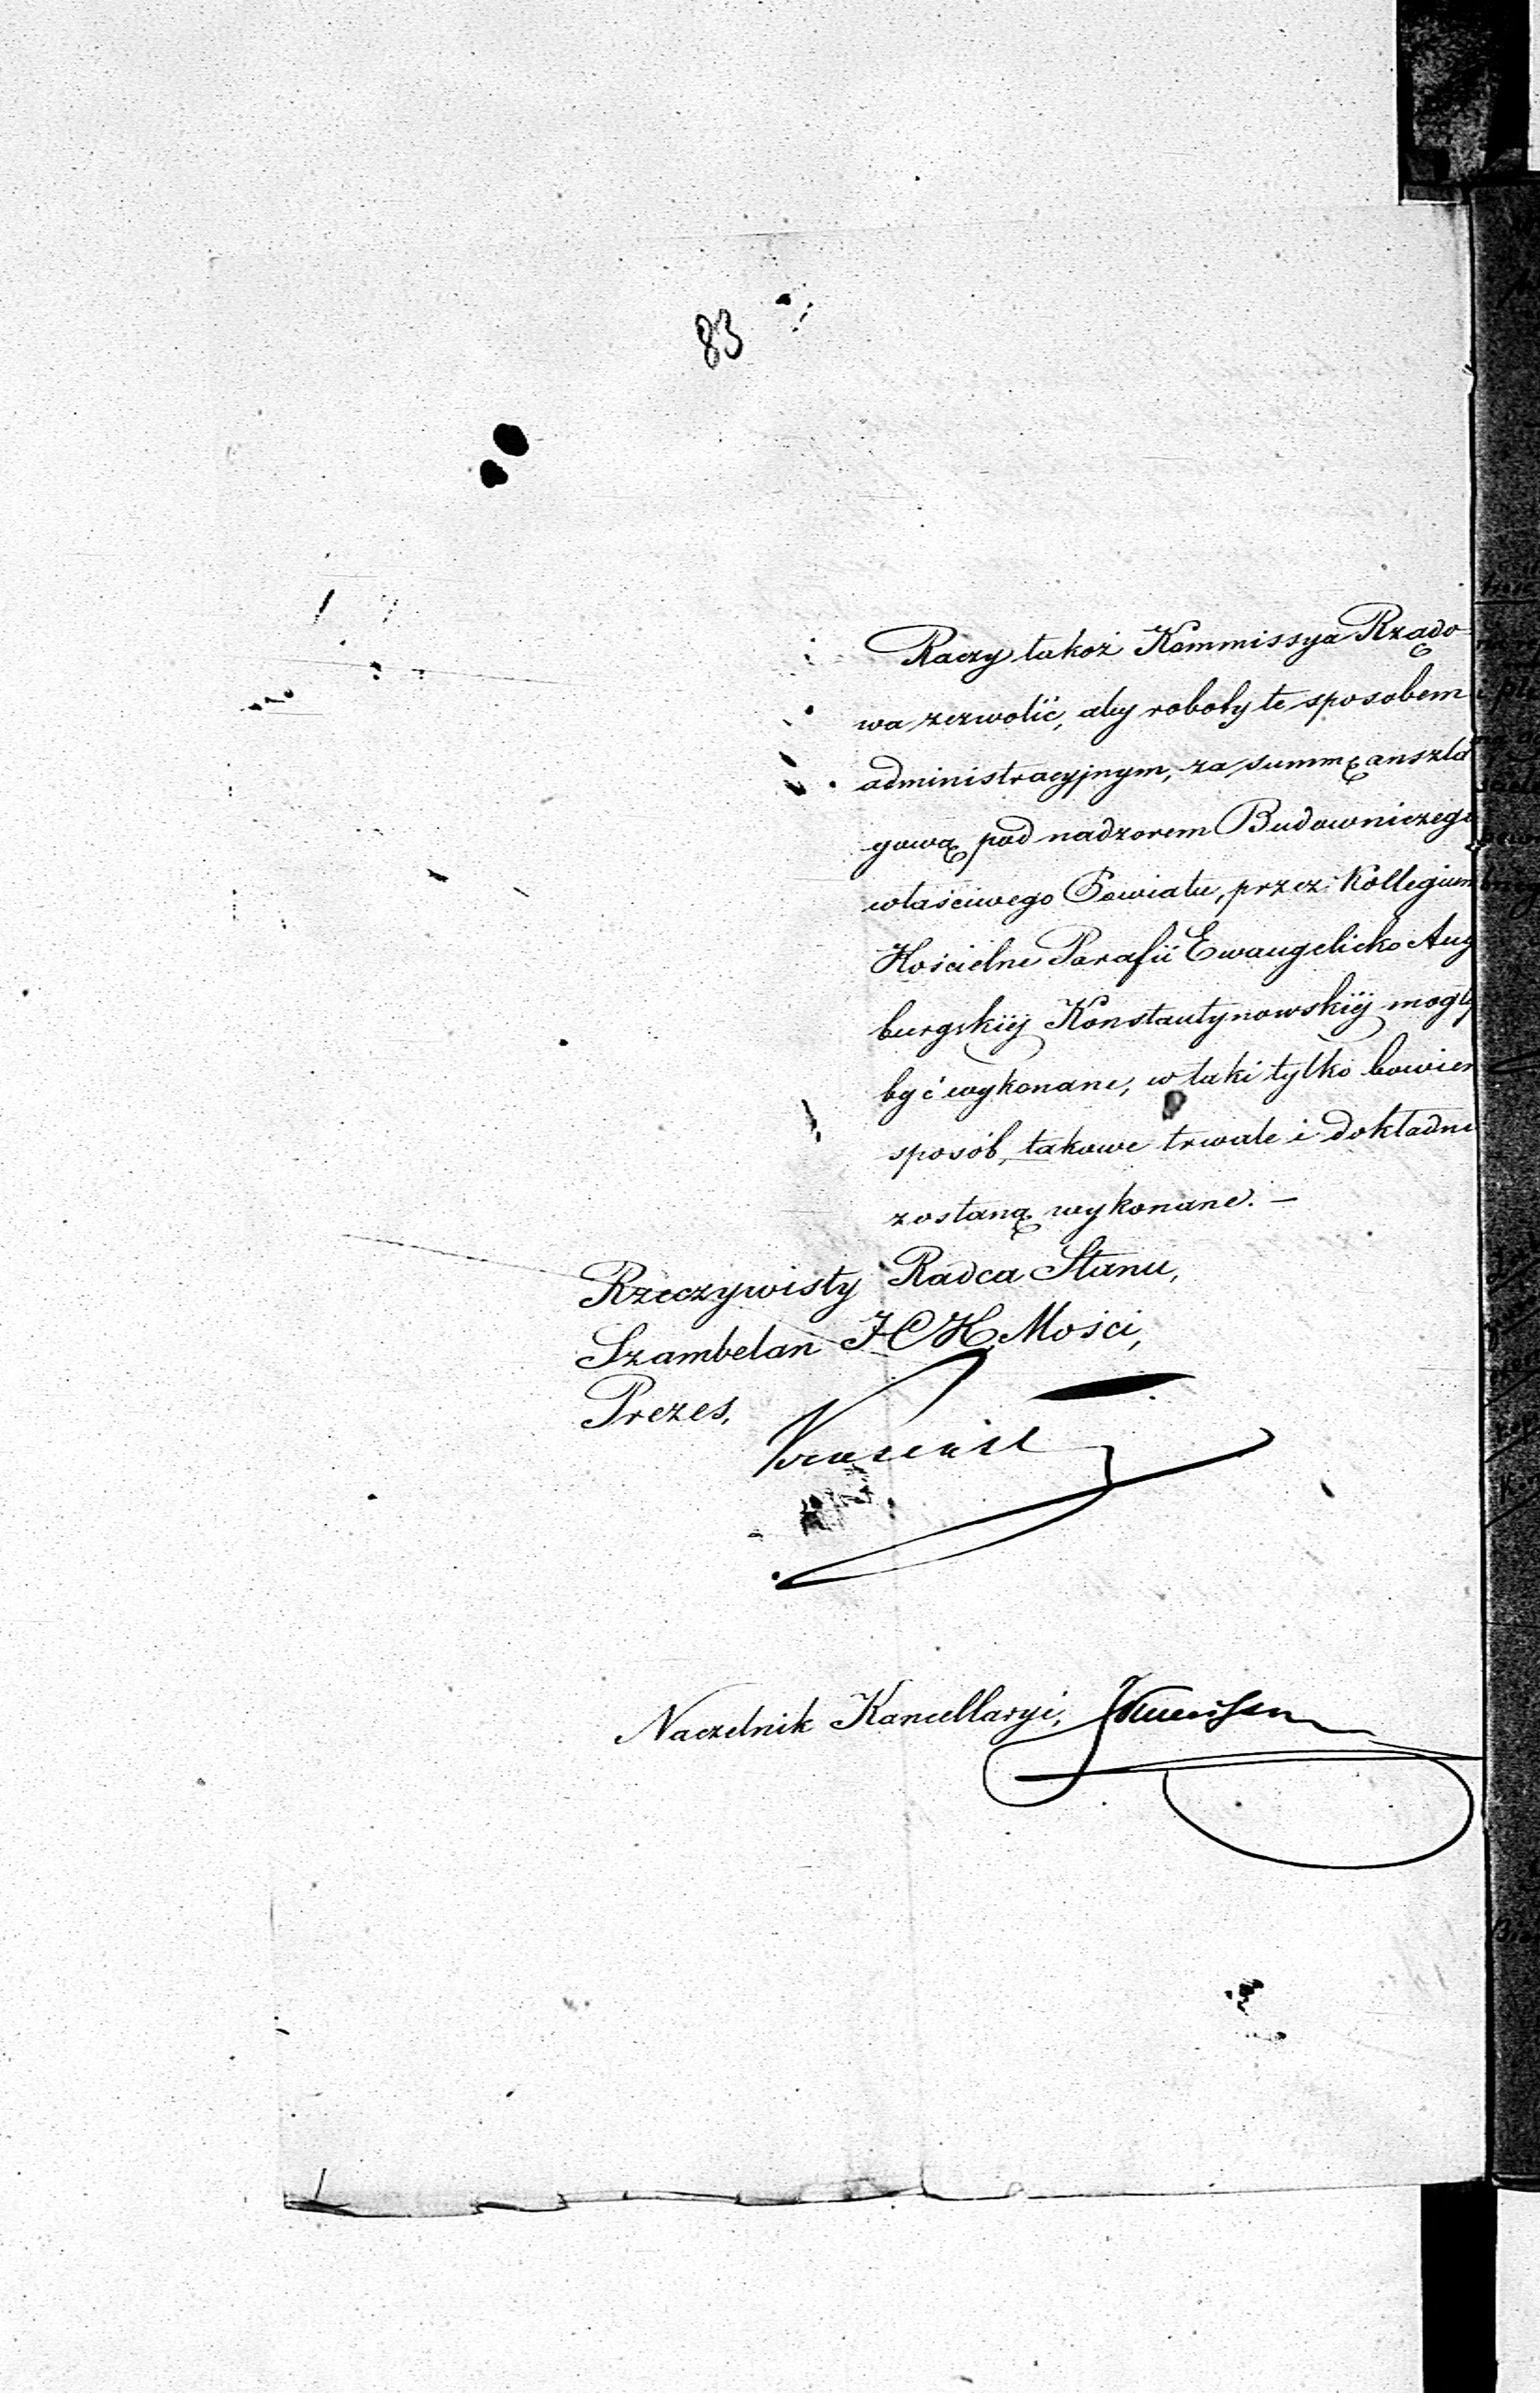 83
Raczy takoż Kommissya Rządo-
wa zezwolić, aby roboty te sposobem
administracyjnym, za summę anszla
gową pod nadzorem Budowniczego
właściwego Powiatu, przez Kollegium
Kościelne Parafii Ewangelicko Aug
burgskiéj Konstantynowskiéj mogły
być wykonane, w taki tylko bowiem
sposób, takowe trwale i dokładnie
zostaną wykonane. —
Rzeczywisty Radca Stanu,
Szambelan JCK Mości,
Prezes,
Naczelnik Kancellaryi,